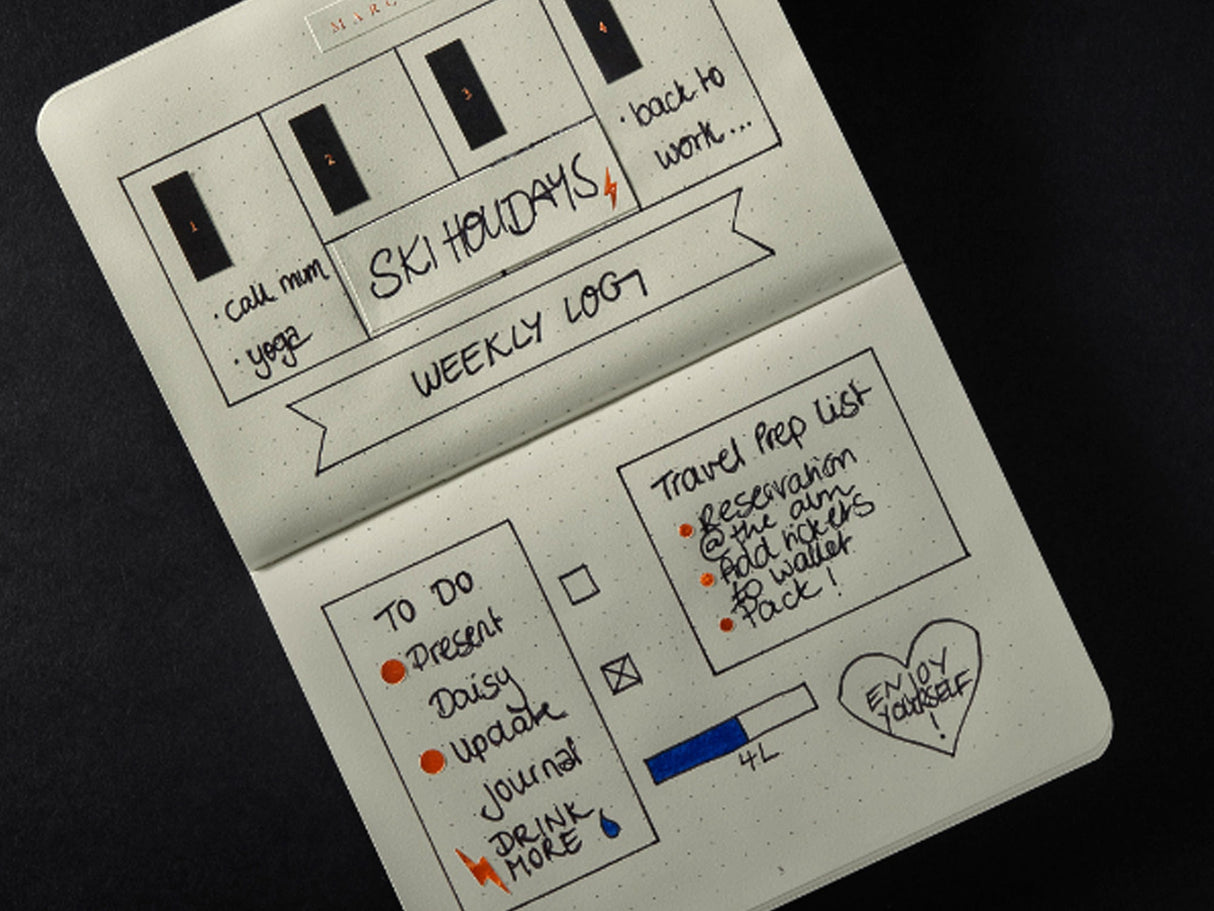 MARC
1
2
3
4
· call mum
· yoga
SKI HOLIDAYS
· back to
work...
WEEKLY LOG
Travel Prep List
Reservation
@the
Add tickets
to wallet
Pack!
TO DO
Present
Daisy
Update
Journal
DRINK
MORE
4L
ENJOY
YOURSELF
!